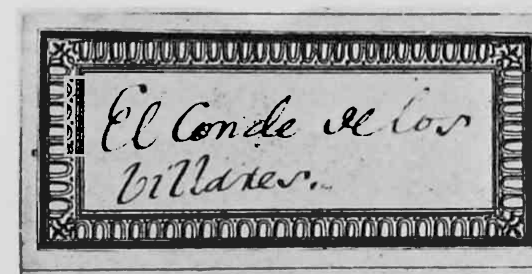 El Conde de los
Villares.